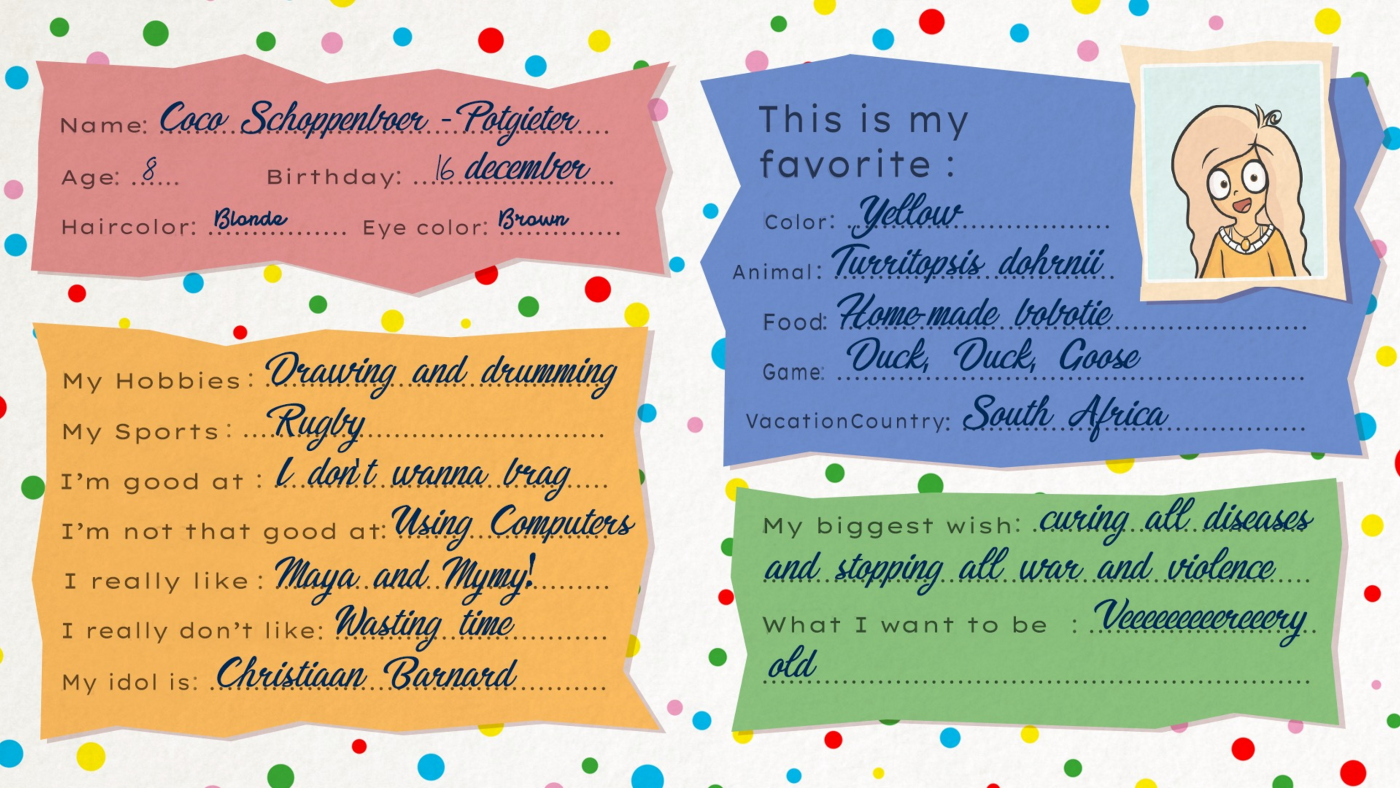 Name: Coco Schoppenboer - Potgieter
Age: 8 Birthday: 16 december
Haircolor: Blonde Eye color: Brown
My Hobbies: Drawing and drumming
My Sports: Rugby
I'm good at: I don't wanna brag
I'm not that good at: Using Computers
I really like: Maya and Mymy!
I really don't like: Wasting time
My idol is: Christiaan Barnard
This is my
favorite :
Color: Yellow
Animal: Turritopsis dohrnii
Food: Home-made bobotie
Game: Duck, Duck, Goose
VacationCountry: South Africa
My biggest wish: curing all diseases
and stopping all war and violence
What I want to be : Veeeeeeeereeery
old